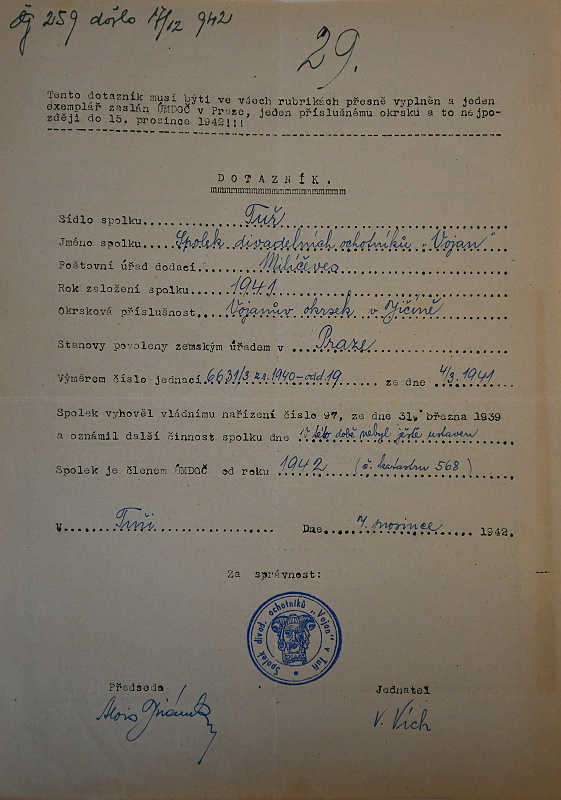 259 došlo 17/12 942
29.
Tento dotazník musí býti ve všech rubrikách přesně vyplněn a jeden
exemplář zaslán ÚMDOČ v Praze, jeden příslušnému okrsku a to nejpo-
zději do 15. prosince 1942!!!
DOTAZNÍK.
Sídlo spolku Tuř
Jméno spolku Spolek divadelních ochotníků „Vojan"
Poštovní úřad dodací Milíčeves
Rok založení spolku 1941
Okrsková příslušnost Vojanův okrsek v Jičíně
Stanovy povoleny zemským úřadem v Praze
Výměrem číslo jednací 6631/3 z r. 1940-odd 19 ze dne 4/3. 1941
Spolek vyhověl vládnímu nařízení číslo 97, ze dne 31. března 1939
a oznámil další činnost spolku dne v této době nebyl ještě ustaven
Spolek je členem ÚMDOČ od roku 1942 (č. katastru 568)
V Tuři Dne 7. prosince 1942.
Za správnost:
Spolek divad. ochotníků „Vojan" v Tuři
Předseda Jednatel
Alois V. Vích